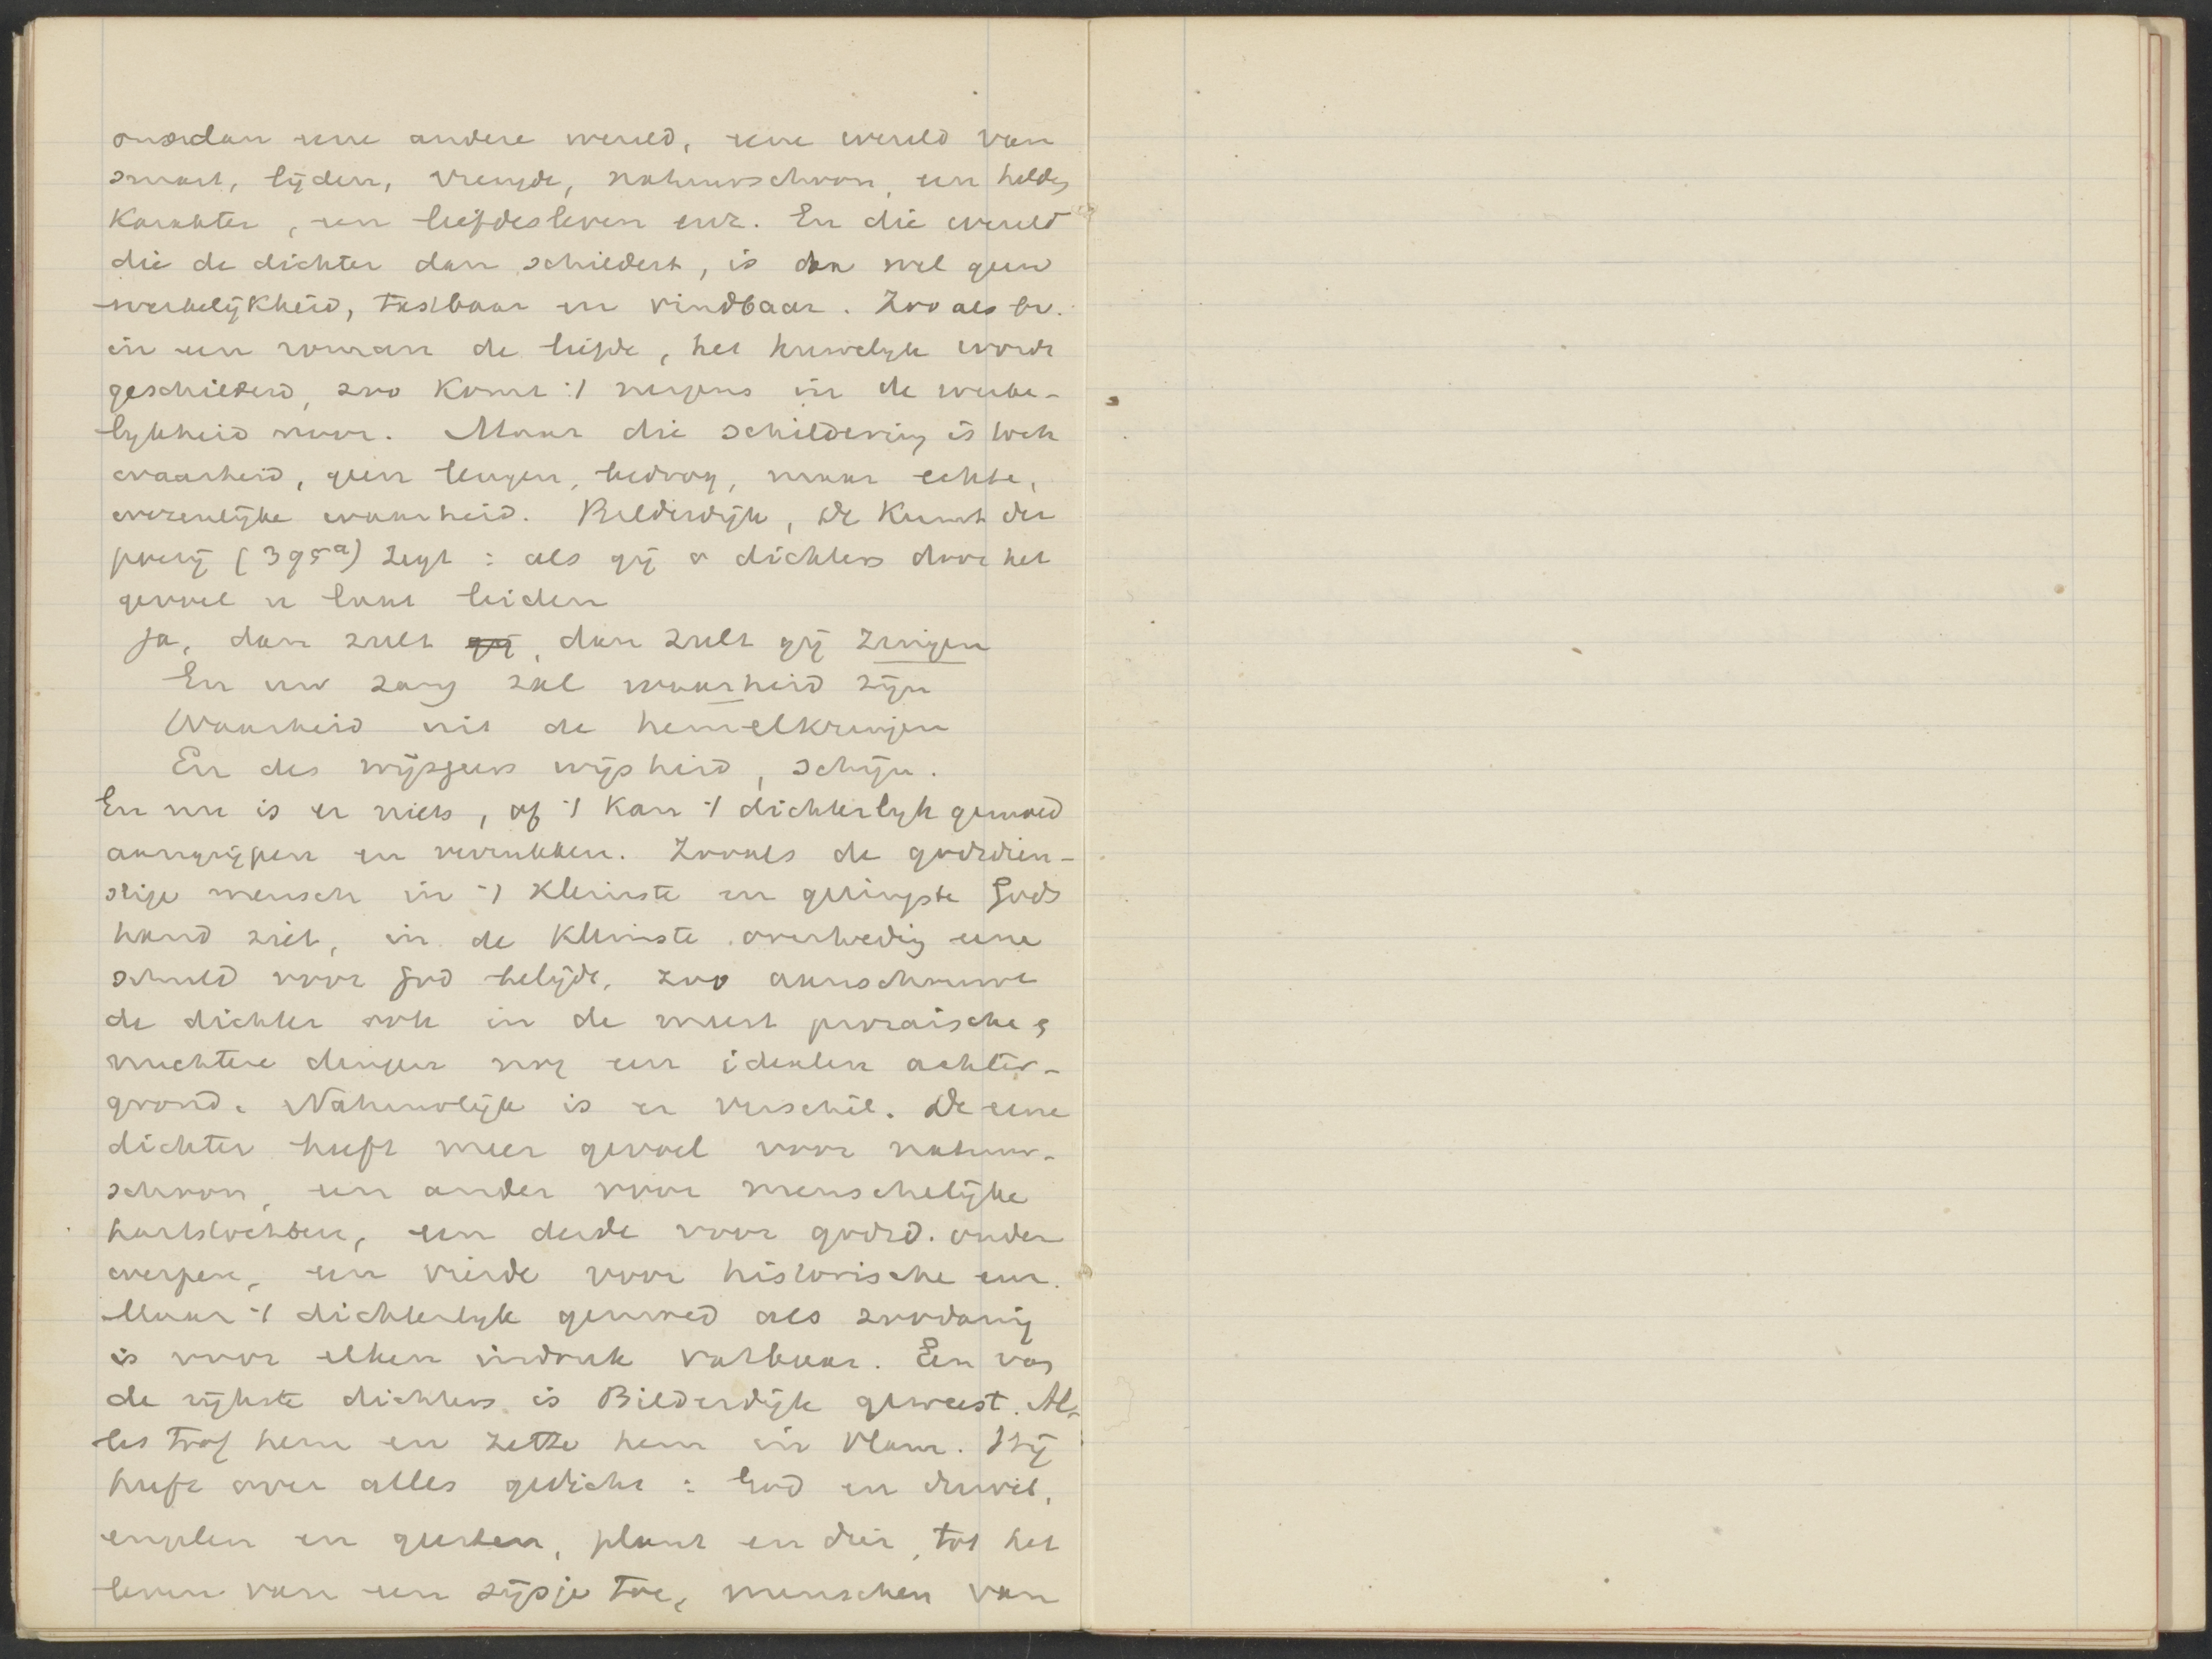 eene andere wereld, eene wereld van
smart, lijden, vreugde, natuurschoon, een helden
karakter, een liefdesleven enz. En die wereld
die de dichter dan schildert, is dan wel geen
werkelijkheid, tastbaar en vindbaar. Zooals bv.
in een roman de liefde, het huwelijk wordt
geschilderd, zoo komt 't nergens in de werke-
lijkheid voor. Maar die schildering is toch
waarheid, geen leugen, bedrog, maar echte,
wezenlijke waarheid. Bilderdijk, De Kunst der
poezij (395a) zegt : als gij o dichters door het
gevoel u laat leiden
Ja, dan zult gij, dan zult gij zingen
En uw zang zal waarheid zijn
Waarheid uit de hemelkringen
En des wijsgeers wijsheid, schijn.
En nu is er niets, of 't kan 't dichterlijk gemoed
aangrijpen en verrukken. Zooals de godsdien-
stige mensch in 't kleinste en geringste Gods
hand ziet, in de kleinste overtreding eene
schuld voor God belijdt, zoo aanschouwt
de dichter ook in de meest prozaische,
nuchtere dingen nog een idealen achter-
grond. Natuurlijk is er verschil. De eene
dichter heeft meer gevoel voor natuur-
schoon, een ander voor menschelijke
hartstochten, een derde voor godsd. onder
werpen, een vierde voor historische enz.
Maar 't dichterlijk gemoed als zoodanig
is voor elken indruk vatbaar. Een van
de rijkste dichters is Bilderdijk geweest. Al-
les trof hem en zette hem in vlam. Hij
heeft over alles gedicht : God en duivel,
englen en geesten, plant en dier, tot het
leven van een sijsje toe, menschen van